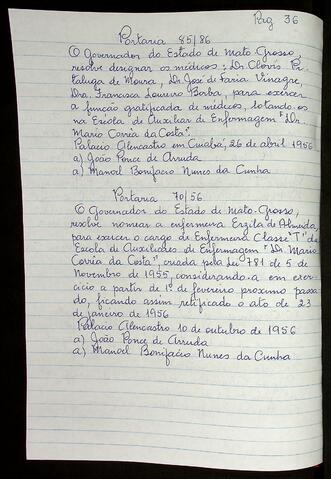 Pag 36
Portaria 85/86
O Governador do Estado de Mato Grosso,
resolve designar os médicos: Dr. Clovis Pi-
taluga de Moura, Dr. José de Faria Vinagre,
Dra. Francisca Loureiro Borba, para exercer
a função gratificada de médicos, lotando-os
na Escola de Auxiliar de Enfermagem "Dr.
Mario Corrêa da Costa".
Palacio Alencastro em Cuiabá, 26 de abril 1956
a) João Ponce de Arruda
a) Manoel Bonifacio Nunes da Cunha
Portaria 70/56
O Governador do Estado de Mato-Grosso,
resolve nomear a enfermeira Erzila de Almeida,
para exercer o cargo de Enfermeira Classe "T" da
Escola de Auxiliares de Enfermagem "Dr. Mario
Corrêa da Costa", criada pela Lei 781 de 5 de
Novembro de 1955, considerando-a em exer-
cicio a partir de 1º de fevereiro proximo passa
do, ficando assim retificado o ato de 23
de janeiro de 1956
Palacio Alencastro 10 de outubro de 1956
a) João Ponce de Arruda
a) Manoel Bonifacio Nunes da Cunha